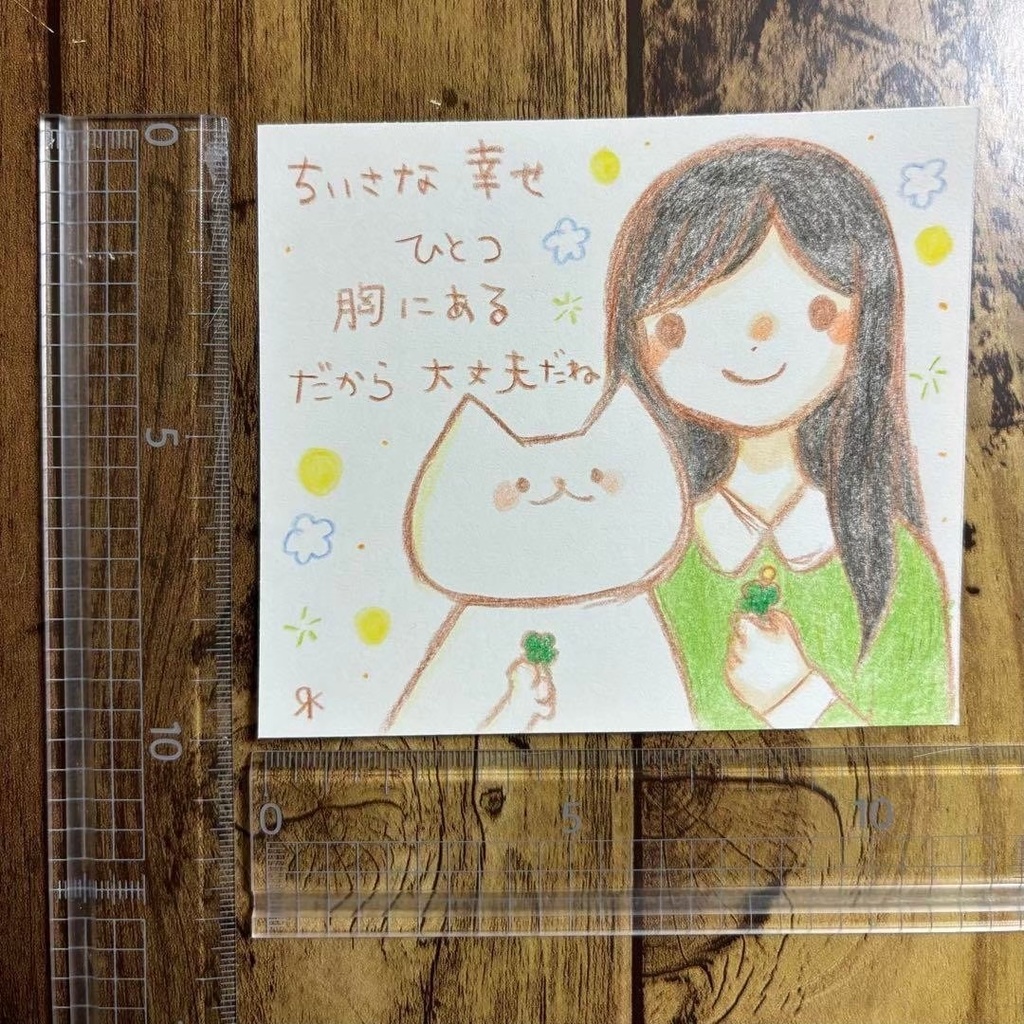 ちいさな 幸せ
ひとつ
胸にある
だから 大丈夫だね
0
5
10
0 5 10